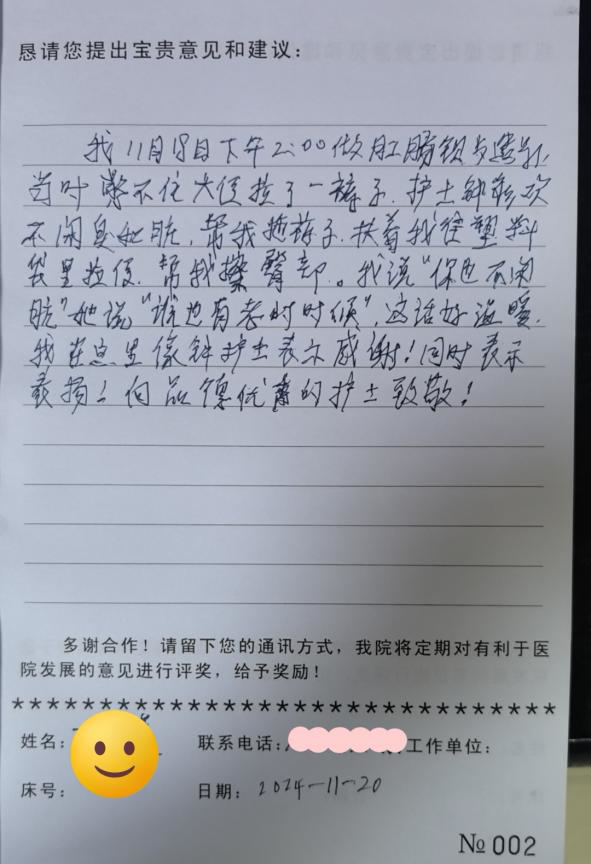 恳请您提出宝贵意见和建议:
我11月18日下午2:00做肛肠钡与造影,
当时憋不住大便拉了一裤子.护士钟
不闲臭和脏,帮我换裤子.扶着我往塑料
袋里拉便.帮我擦臀部。我说"你也不闲
脏"她说"谁也有老时时候",这话好温暖.
我在向钟护士表示感谢!同时表示
表扬!向品德优的护士致敬!
多谢合作!请留下您的通讯方式,我院将定期对有利于医
院发展的意见进行评奖,给予奖励!
*********************************
姓名: 联系电话: 工作单位:
床号: 日期: 2024-11-20
№ 002